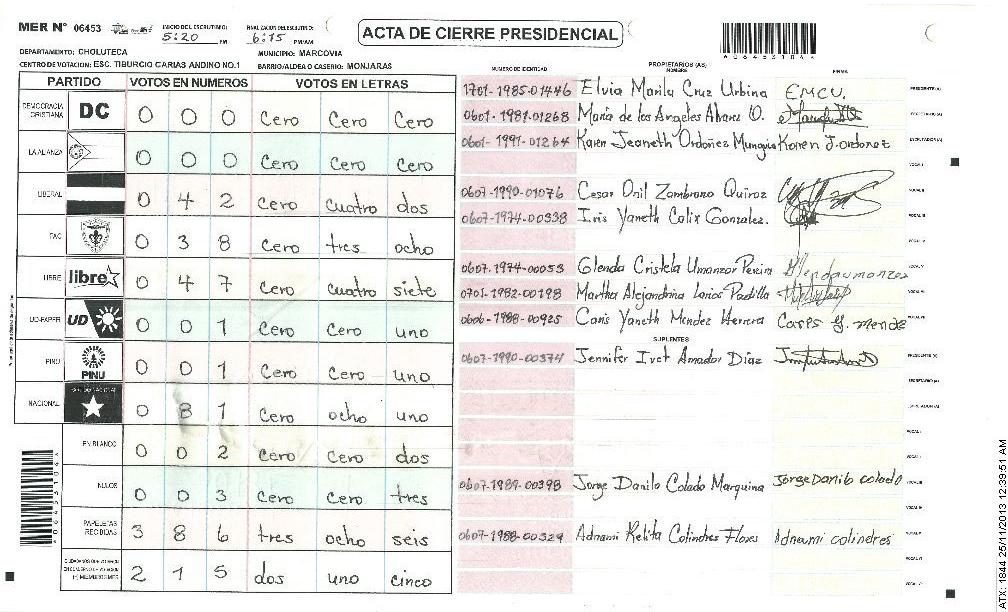 MER N° 06453 INICIO DEL ESCRUTINIO: 5:20 PM FINALIZACION DEL ESCRUTINIO: 6:15 PM/AM
ACTA DE CIERRE PRESIDENCIAL
DEPARTAMENTO: CHOLUTECA MUNICIPIO: MARCOVIA
CENTRO DE VOTACION: ESC. TIBURCIO CARIAS ANDINO NO.1 BARRIO/ALDEA O CASERIO: MONJARAS
*06453104*
PARTIDO VOTOS EN NUMEROS VOTOS EN LETRAS
DEMOCRACIA CRISTIANA DC 0 0 0 Cero Cero Cero
LA ALIANZA 0 0 0 Cero Cero Cero
LIBERAL 0 4 2 Cero cuatro dos
PAC 0 3 8 Cero tres ocho
LIBRE libre 0 4 7 Cero cuatro siete
UD-FAPER UD 0 0 1 Cero Cero uno
PINU PINU 0 0 1 Cero Cero uno
NACIONAL 0 8 1 Cero ocho uno
EN BLANCO 0 0 2 Cero Cero dos
NULOS 0 0 3 Cero Cero tres
PAPELETAS RECIBIDAS 3 8 6 tres ocho seis
CIUDADANOS QUE VOTARON EN CUADERNO DE VOTACION (+) MIEMBROS MER 2 1 5 dos uno cinco
*06453104*
NUMERO DE IDENTIDAD PROPIETARIOS (AS) NOMBRE FIRMA
1701-1985-01446 Elvia Marila Cruz Urbina EMCU. PRESIDENTE(A)
0601-1981-01268 María de los Angeles Alvarez O. SECRETARIO(A)
0601-1991-01264 Karen Jeaneth Ordoñez Munguia Karen J. ordoñez ESCRUTADOR(A)
VOCAL I
0607-1990-01076 Cesar Onil Zambrano Quiroz VOCAL II
0607-1974-00338 Iris Yaneth Calix Gonzalez. VOCAL III
VOCAL IV
0607-1974-00053 Glenda Cristela Umanzor Pereira Glenda umanzor VOCAL V
0701-1982-00198 Martha Alejandrina Larios Padilla VOCAL VI
0606-1988-00925 Caris Yaneth Mendez Herrera VOCAL VII
SUPLENTES
0607-1990-00374 Jennifer Ivet Amador Díaz PRESIDENTE(A)
SECRETARIO(A)
ESCRUTADOR(A)
VOCAL I
VOCAL II
0607-1989-00398 Jorge Danilo Colado Marquina Jorge Danilo colado VOCAL III
VOCAL IV
0607-1988-00329 Adnami Relita Colindres Flores Adnami colindres VOCAL V
VOCAL VI
VOCAL VII
ATX: 1844 25/11/2013 12:39:51 AM